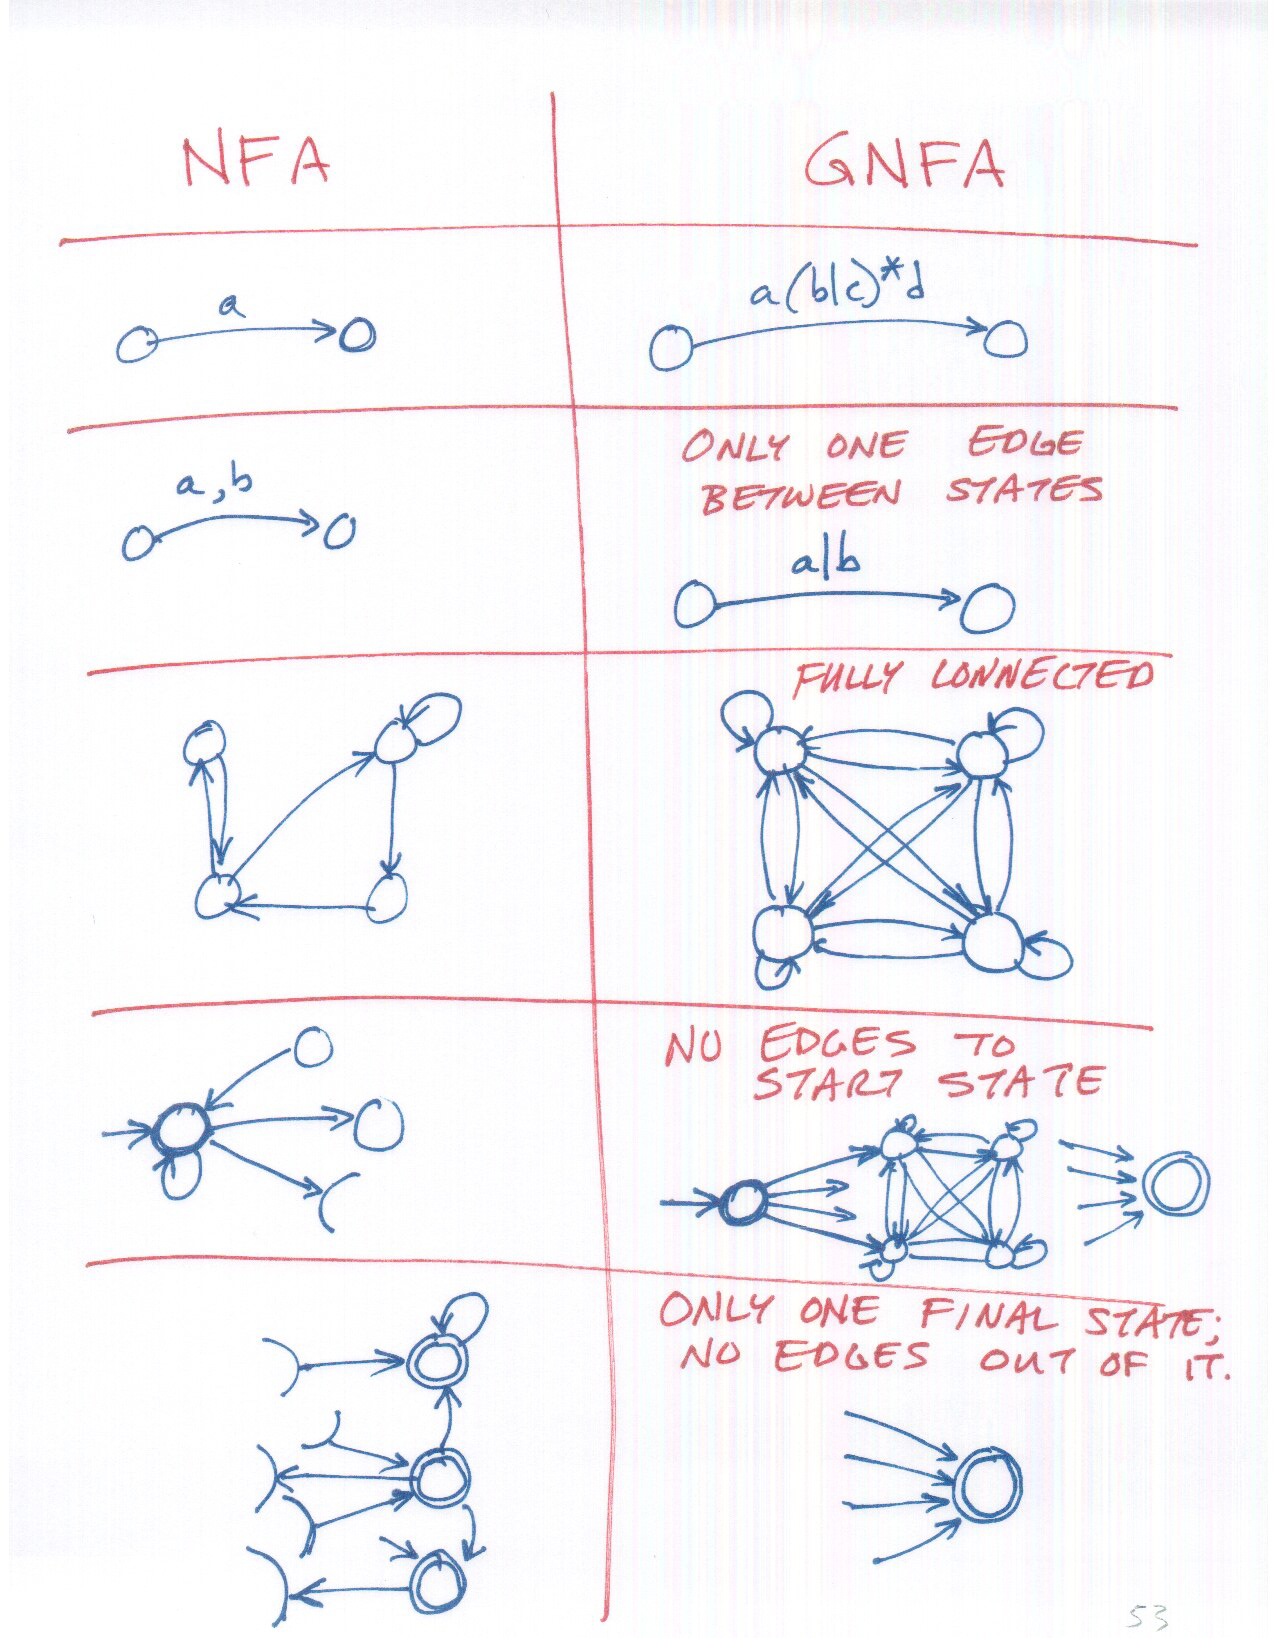 NFA
GNFA
a
a(b|c)*d
a,b
ONLY ONE EDGE
BETWEEN STATES
a|b
FULLY CONNECTED
NO EDGES TO
START STATE
ONLY ONE FINAL STATE;
NO EDGES OUT OF IT.
53